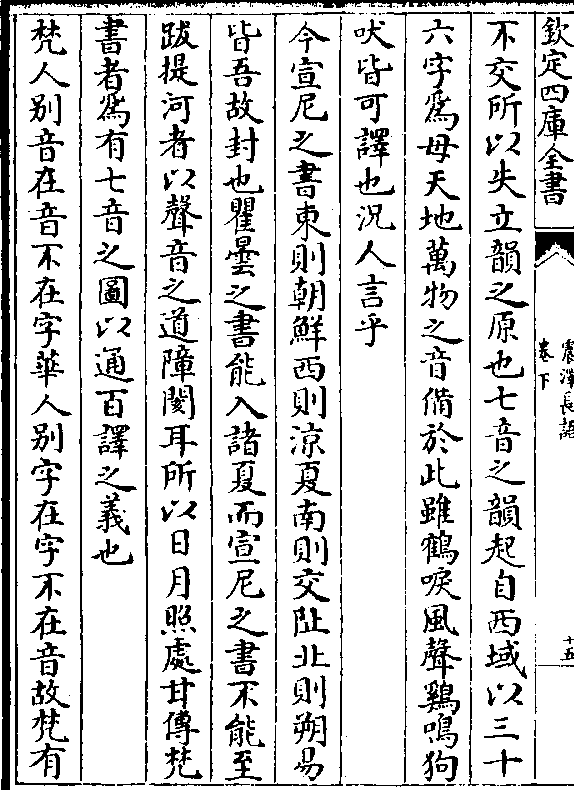 欽定四庫全書
震澤長語
卷下
十五
不交所以失立韻之原也七音之韻起自西域以三十
六字爲母天地萬物之音備於此雖鶴唳風聲鷄鳴狗
吠皆可譯也況人言乎
今宣尼之書東則朝鮮西則涼夏南則交阯北則朔易
皆吾故封也瞿曇之書能入諸夏而宣尼之書不能至
跋提河者以聲音之道障閡耳所以日月照處甘傳梵
書者爲有七音之圖以通百譯之義也
梵人別音在音不在字華人別字在字不在音故梵有